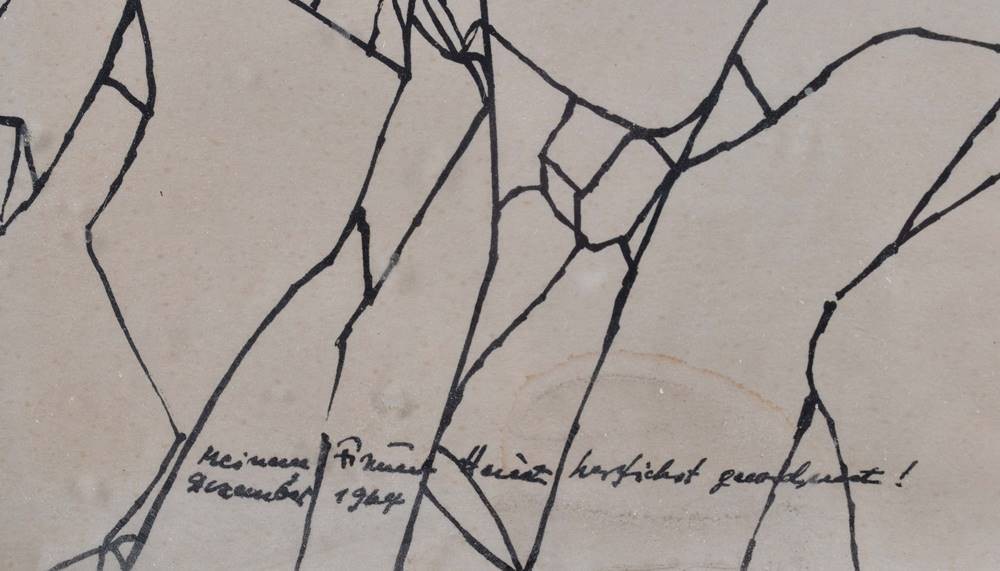 Meinem Freund Heinz herzlichst gewidmet!
Dezember 1964